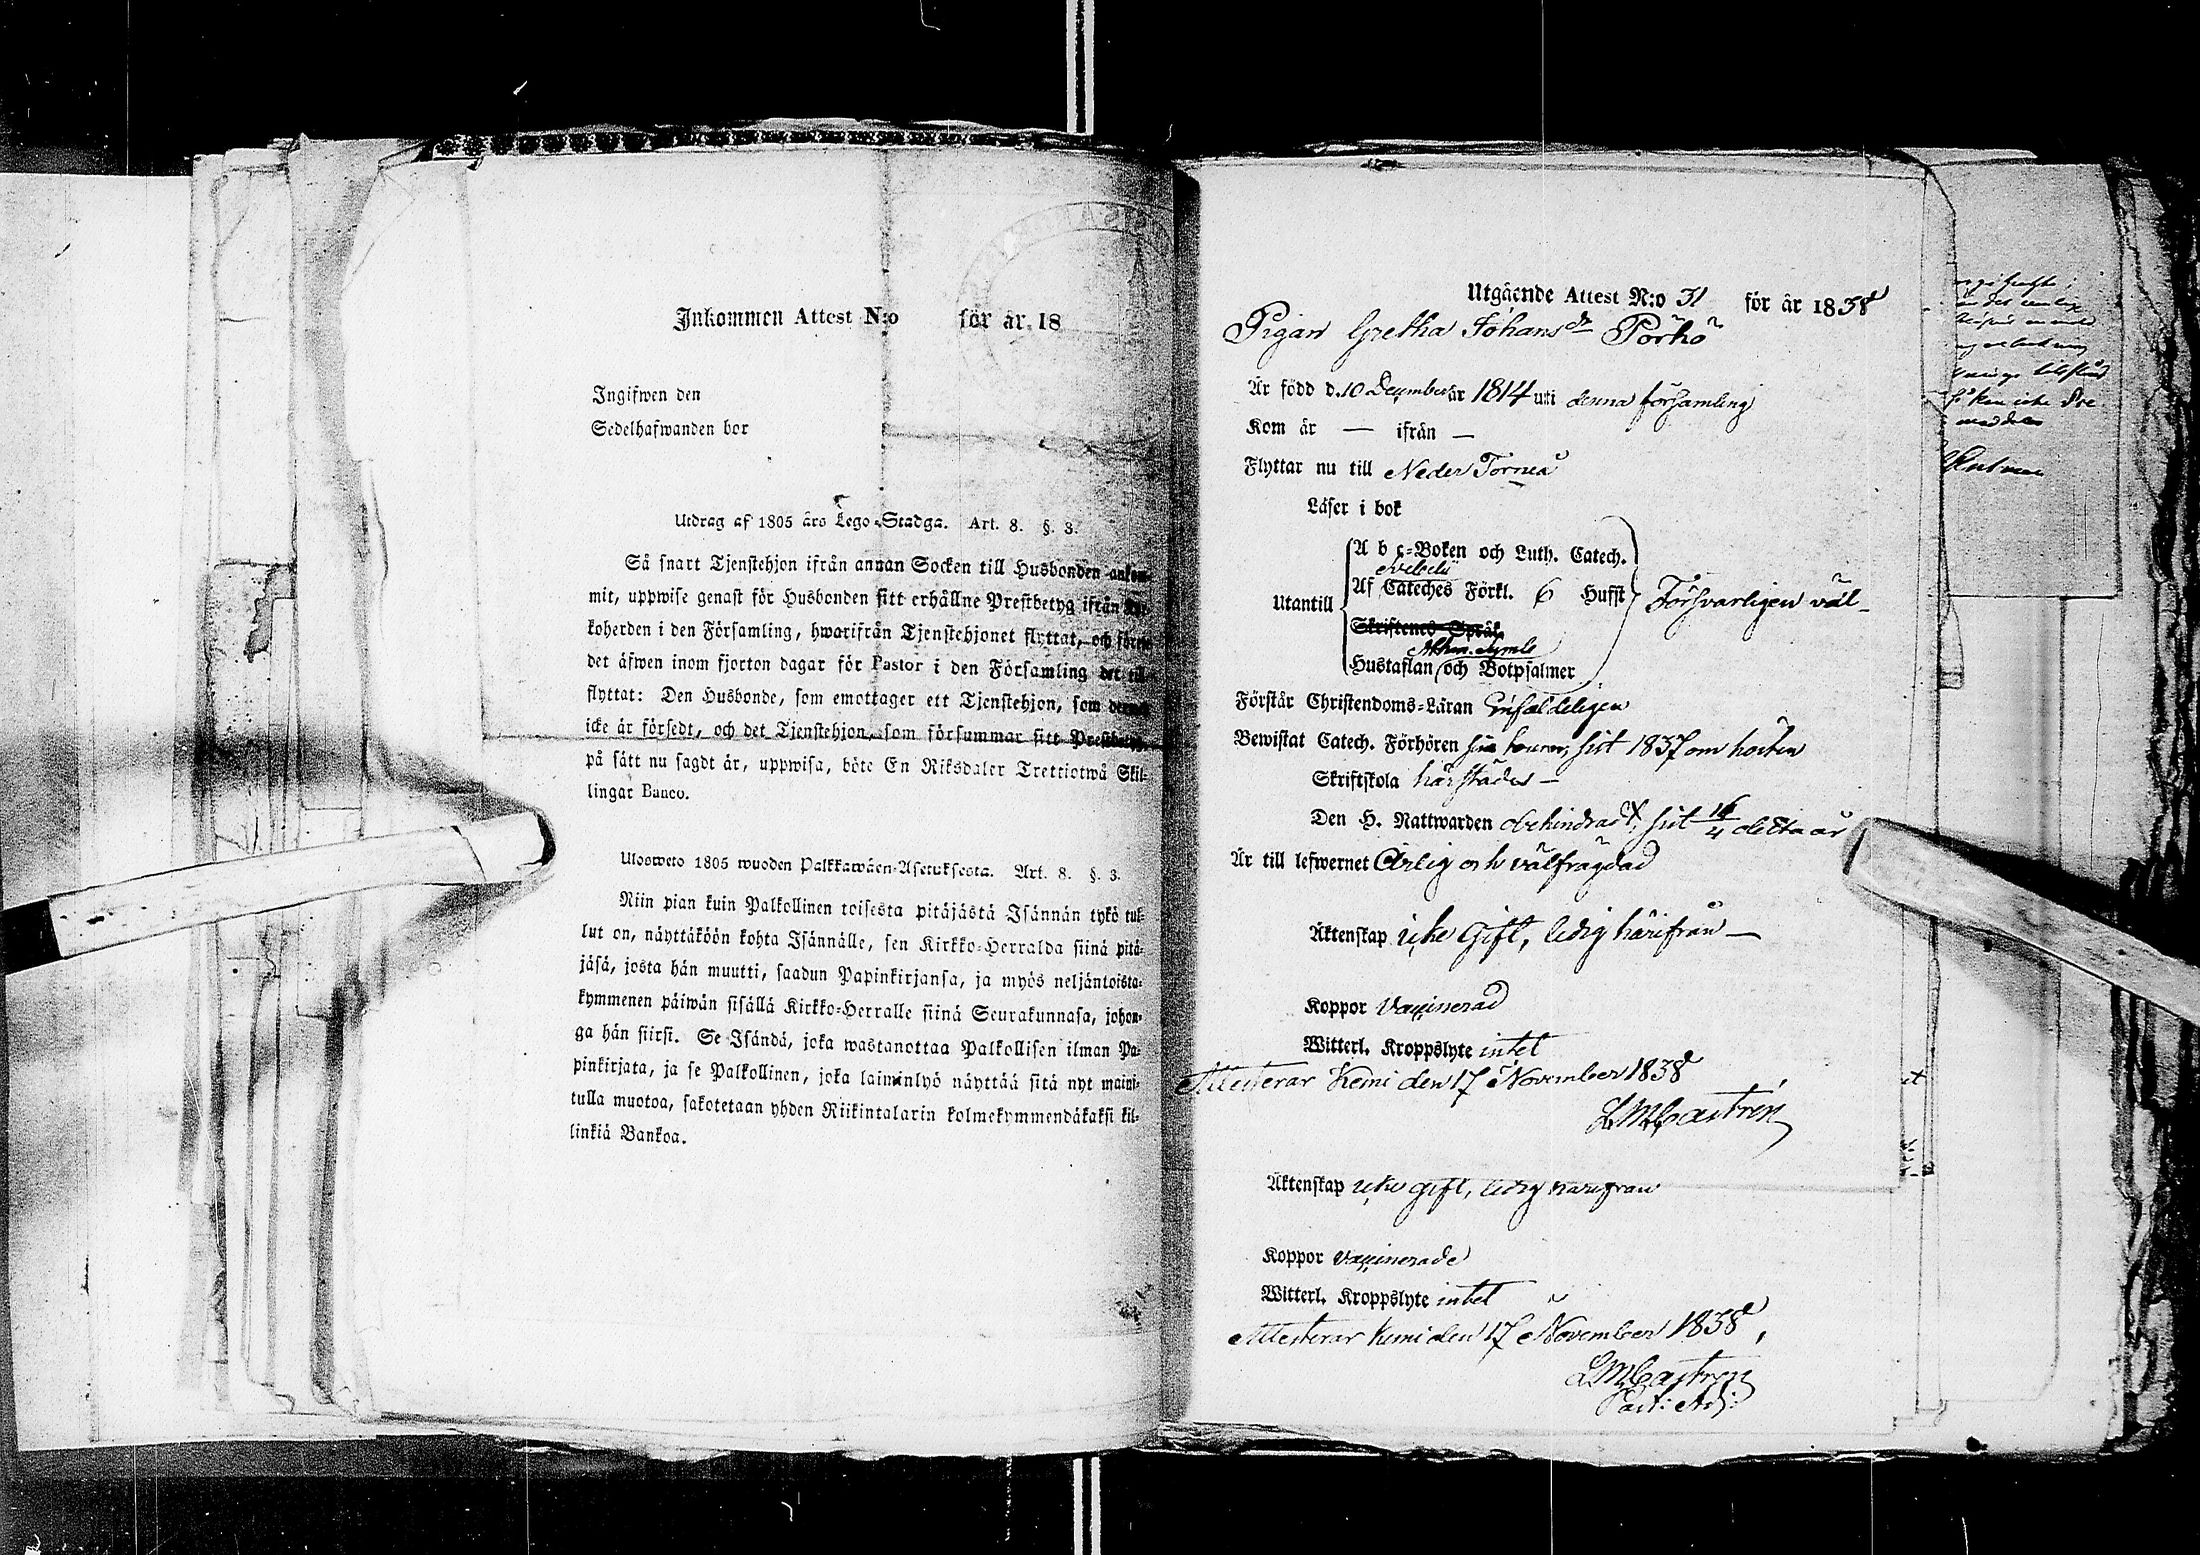 Inkommen Attest N:o för år 18
Ingifwen den
Sedelhafwanden bor
Utdrag af 1805 års Lego-Stadga. Art. 8. §. 3.
Så snart Tjenstehjon ifrån annan Socken till Husbonden ankom-
mit, uppwise genast för Husbonden sitt erhållne Prestbetyg ifrån
koherden i den Församling, hwarifrån Tjenstehjonet flyttat, och
det äfwen inom fjorton dagar för Pastor i den Församling det till
flyttat: Den Husbonde, som emottager ett Tjenstehjon, som
icke är försedt, och det Tjenstehjon, som försummar sitt Prestbetyg,
på sätt nu sagdt är, uppwisa, böte En Riksdaler Trettiotwå Skil-
lingar Banco.
Ulosweto 1805 wuoden Palkkawäen-Asetuksesta. Art. 8. §. 3.
Niin pian kuin Palkollinen toisesta pitäjästä Isännän tykö tul-
lut on, näyttäköön kohta Isännälle, sen Kirkko-Herralda siinä pitä-
jäsä, josta hän muutti, saadun Papinkirjansa, ja myös neljäntoista-
kymmenen päiwän sisällä Kirkko-Herralle siinä Seurakunnasa, johon-
ga hän siirsi. Se Isändä, joka wastanottaa Palkollisen ilman Pa-
pinkirjata, ja se Palkollinen, joka laiminlyö näyttää sitä nyt maini-
tulla muotoa, sakotetaan yhden Riikintalarin kolmekymmendäkaksi kil-
linkiä Bankoa.
Utgående Attest N:o 31 för år 1838
Pigan Gretha Johansdr Pörhö
Är född d. 10 December år 1814 uti denna församling
Kom år — ifrån —
Flyttar nu till Neder Torneå
Läser i bok
A b c-Boken och Luth. Catech.
Svebelii
Utantill Af Cateches Förkl. 6 Hufst Försvarligen väl
Skriftenes Språk
Athan. Symb.
Hustaflan och Botpsalmer
Förstår Christendoms-Läran Enfaldeligen
Bewistat Catech. Förhören sist 1837 om hösten
Skriftskola härstädes —
Den H. Nattwarden obehindrad, sist 16/4 detta år
Är till lefwernet Ärlig och välfrägdad
Äktenskap icke Gift, ledig härifrån —
Koppor Vaccinerad
Witterl. Kroppslyte intet
Attesterar Kemi den 17 November 1838
L M Castrén
Äktenskap icke gift, ledig härifrån
Koppor vaccinerade
Witterl. Kroppslyte intet
Attesterar Kemi den 17 November 1838,
L M Castrén
Past: Adj: